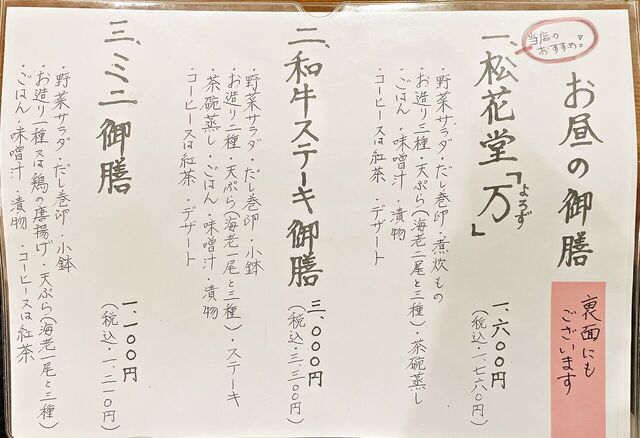 お昼の御膳
裏面にも
ございます
当店の
おすすめ!
一、松花堂「万」
よろず
一、六〇〇円
(税込・一、七六〇円)
・野菜サラダ・だし巻卵・煮炊もの
・お造り三種・天ぷら(海老二尾と三種)・茶碗蒸し
・ごはん・味噌汁・漬物
・コーヒー又は紅茶・デザート
二、和牛ステーキ御膳
三、〇〇〇円
(税込・三、三〇〇円)
・野菜サラダ・だし巻卵・小鉢
・お造り二種・天ぷら(海老一尾と三種)・ステーキ
・茶碗蒸し・ごはん・味噌汁・漬物
・コーヒー又は紅茶・デザート
三、ミニ御膳
一、一〇〇円
(税込・一、二一〇円)
・野菜サラダ・だし巻卵・小鉢
・お造り一種又は鶏の唐揚げ・天ぷら(海老一尾と三種)
・ごはん・味噌汁・漬物・コーヒー又は紅茶